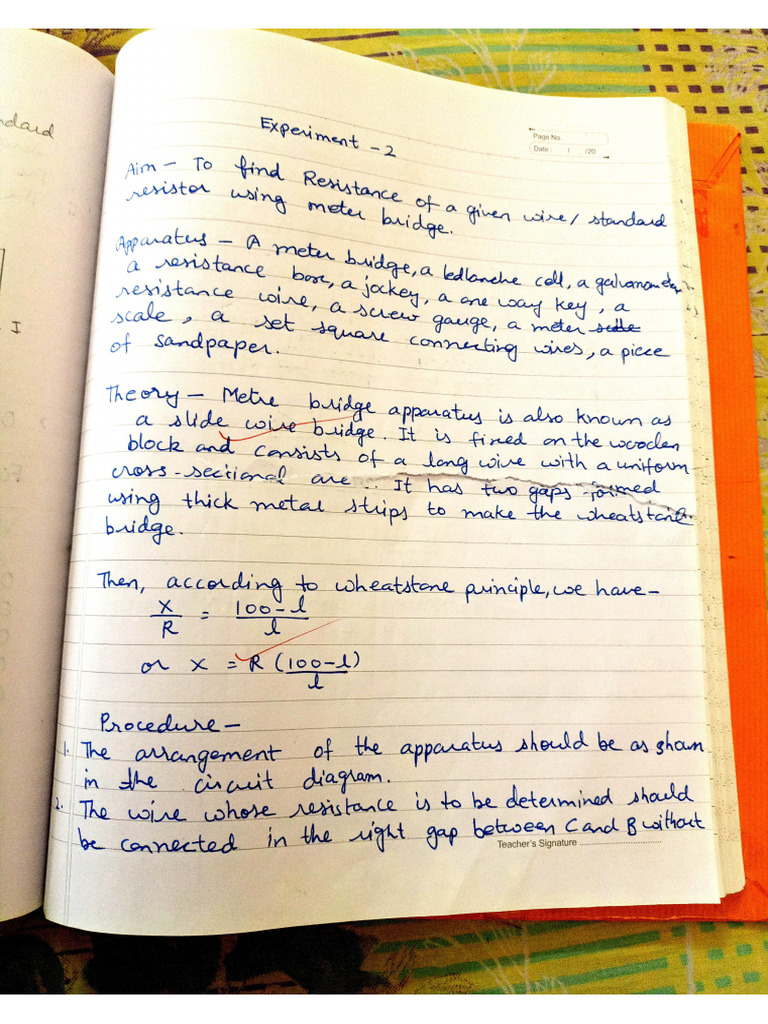 ndard
I
Experiment - 2
Page No.
Date : / /20
Aim - To find Resistance of a given wire/ standard
resistor using meter bridge.
Apparatus - A meter bridge, a ledlanche cell, a galvanometer,
a resistance box, a jockey, a one way key, a
resistance wire, a screw gauge, a meter
scale, a set square connecting wires, a piece
of sandpaper.
Theory - Metre bridge apparatus is also known as
a slide wire bridge. It is fixed on the wooden
block and consists of a long wire with a uniform
cross-sectional are . It has two gaps formed
using thick metal strips to make the wheatstone
bridge.
Then, according to wheatstone principle, we have-
X/R = 100-l/l
or X = R (100-l)/l
Procedure -
1. The arrangement of the apparatus should be as shown
in the circuit diagram.
2. The wire whose resistance is to be determined should
be connected in the right gap between C and B without
Teacher's Signature ..............................